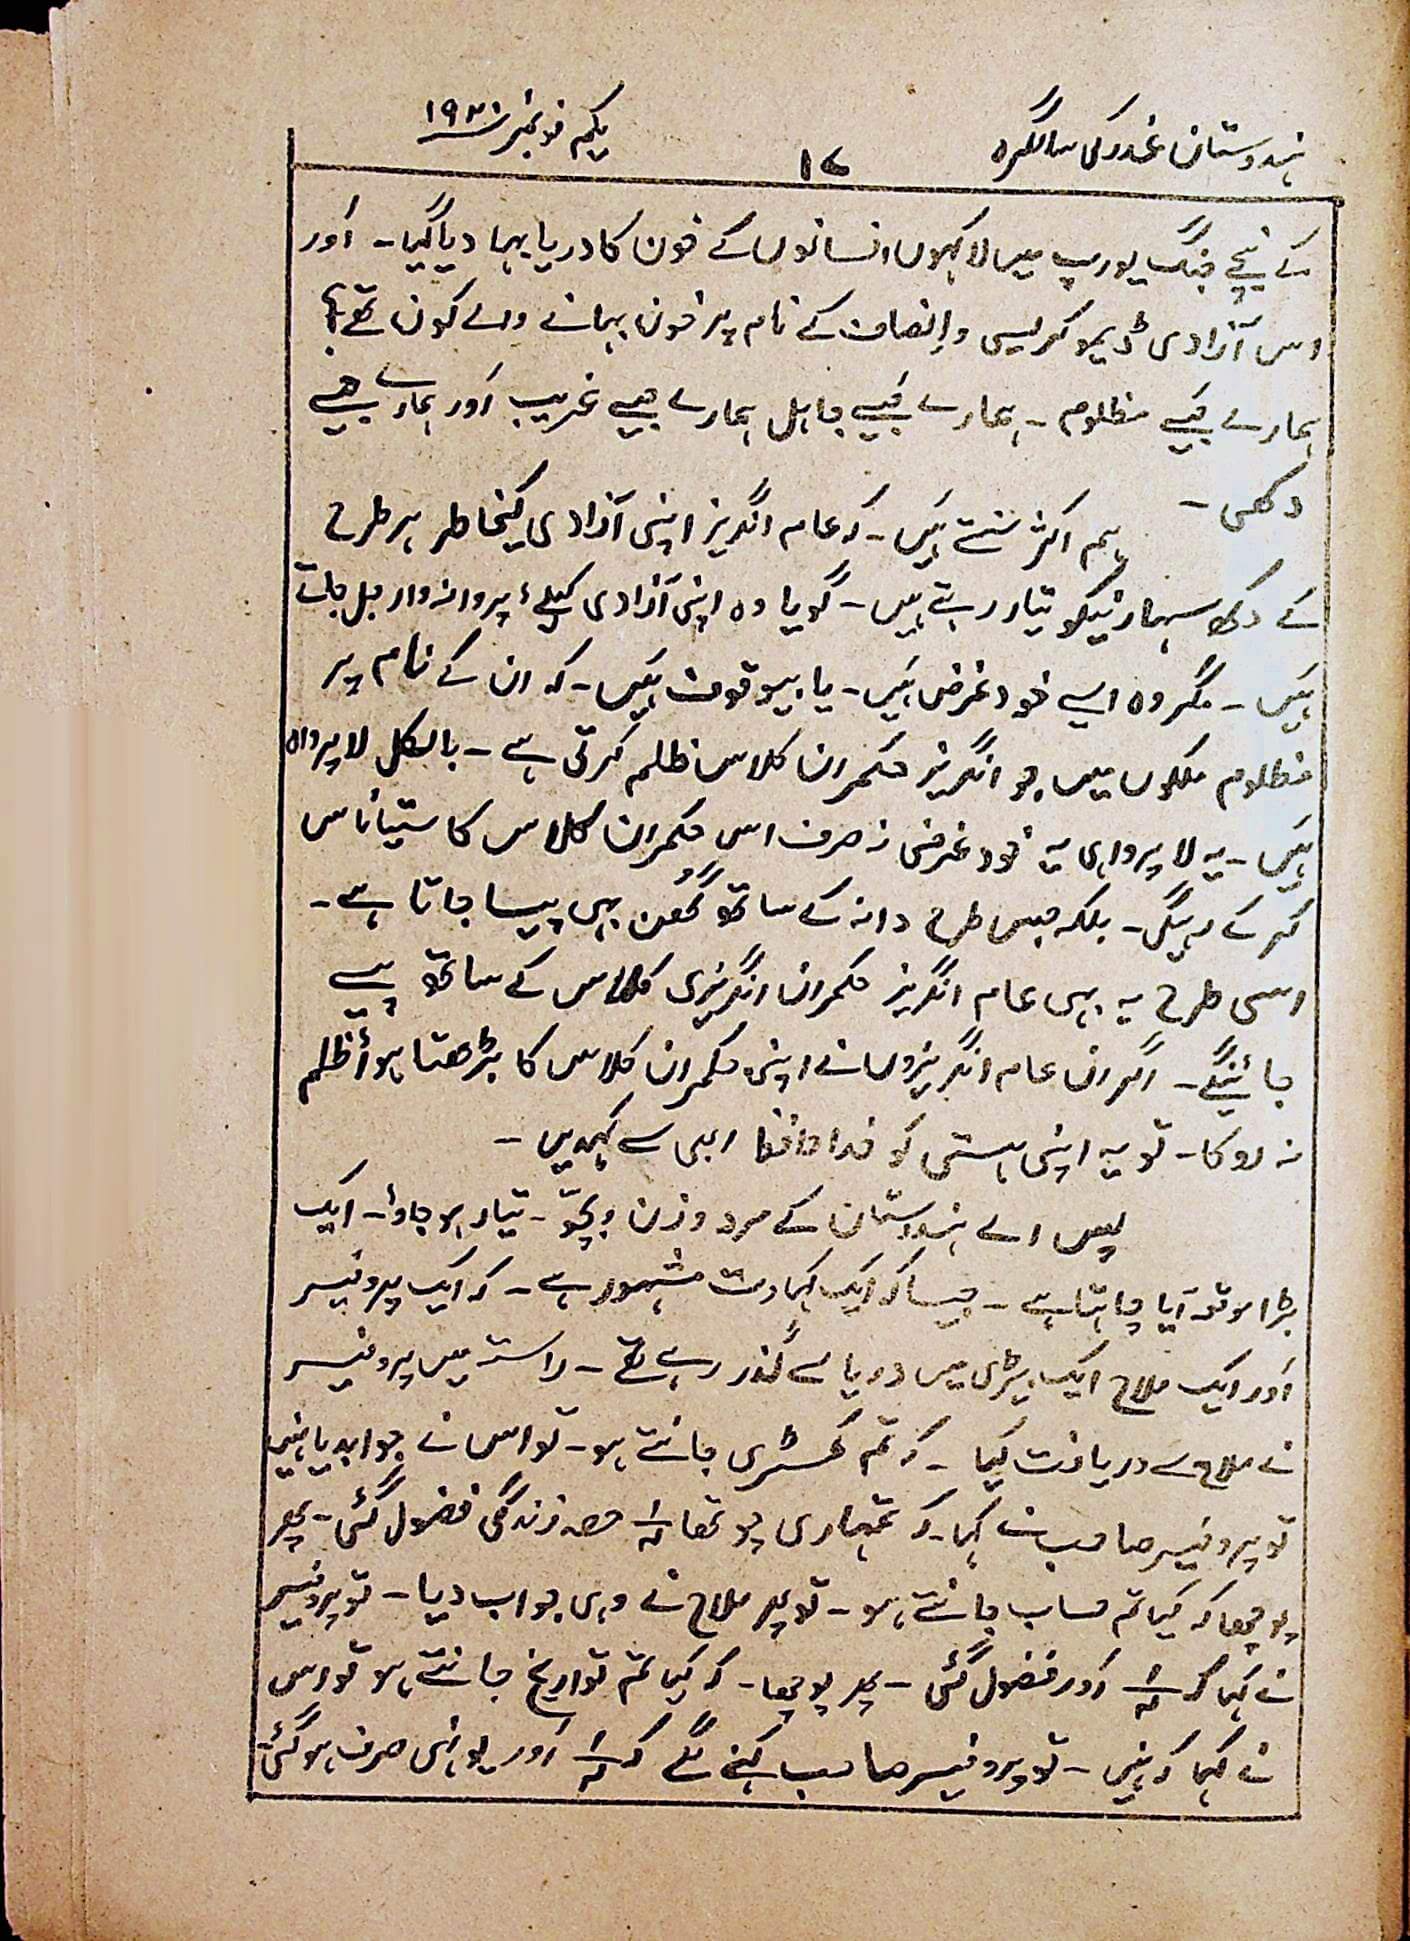 ہندوستان غدر کی سالگرہ
۱۷
یکم نومبر ۱۹۳۰
کے نیچے جنگ یورپ میں لاکہوں انسانوں کے خون کا دریا بہا دیا گیا ۔ اَور
اس آزادی ڈیموکریسی و اِنصاف کے نام پر خون بہانے والے کون تھے؟
ہمارے جَیسے مظلوم ۔ ہمارے جَیسے جاہل ہمارے جیسے غریب اَور ہمارے جیسے
دکھی ۔
ہم اکثر سنتے ہَیں ۔ کہ عام انگریز اپنی آزادی کیخاطر ہر طرح
کے دکھ سہارنیکو تیار رہتے ہیں ۔ گویا وہ اپنی آزادی کیلئے پروانہ وار جل جاتے
ہَیں ۔ مگر وہ ایسے خود غرض ہَیں ۔ یا بیوقوف ہَیں ۔ کہ ان کے نام پر
مظلوم ملکوں میں جو انگریز حکمران کلاس ظلم کرتی ہے ۔ بالکل لاپرواہ
ہَیں ۔ یہ لاپرواہی یہ خود غرضی نہ صرف اس حکمران کلاس کا ستیاناس
کر کے رہیگی ۔ بلکہ جس طرح دانہ کے ساتھ گُھن بہی پیسا جاتا ہے ۔
اسی طرح یہ بہی عام انگریز حکمران انگریزی کلاس کے ساتھ پیسے
جائینگے ۔ اگر ان عام انگریزوں نے اپنی حکمران کلاس کا بڑھتا ہوأ ظلم
نہ روکا ۔ تو یہ اپنی ہستی کو خدا حافظ ابھی سے کہدیں ۔
پس اے ہندوستان کے مرد و زن و بچّو ۔ تیار ہو جاؤ ۔ ایک
بڑا موقعہ آیا چاہتا ہے ۔ جیسا کہ ایک کہاوت مشہور ہے ۔ کہ ایک پروفیسر
اَور ایک ملاح ایک بیڑی میں دریا سے گذر رہے تھے ۔ راستہ میں پروفیسر
نے ملاح سے دریافت کیا ۔ کہ تم کمسٹری جانتے ہو ۔ تو اس نے جوابدیا نہیں
تو پروفیسر صاحب نے کہا ۔ کہ تمہاری چوتھا ۱/۴ حصہ زندگی فضول گئی ۔ پھر
پوچھا کہ کیا تم حساب جانتے ہو ۔ تو پھر ملاح نے وہی جواب دیا ۔ تو پروفیسر
نے کہا کہ ۱/۴ اَور فضول گئی ۔ پھر پوچھا ۔ کہ کیا تم تواریخ جانتے ہو تو اس
نے کہا کہ نہیں ۔ تو پروفیسر صاحب کہنے لگے کہ ۱/۴ اَور یونہی صرف ہو گئی